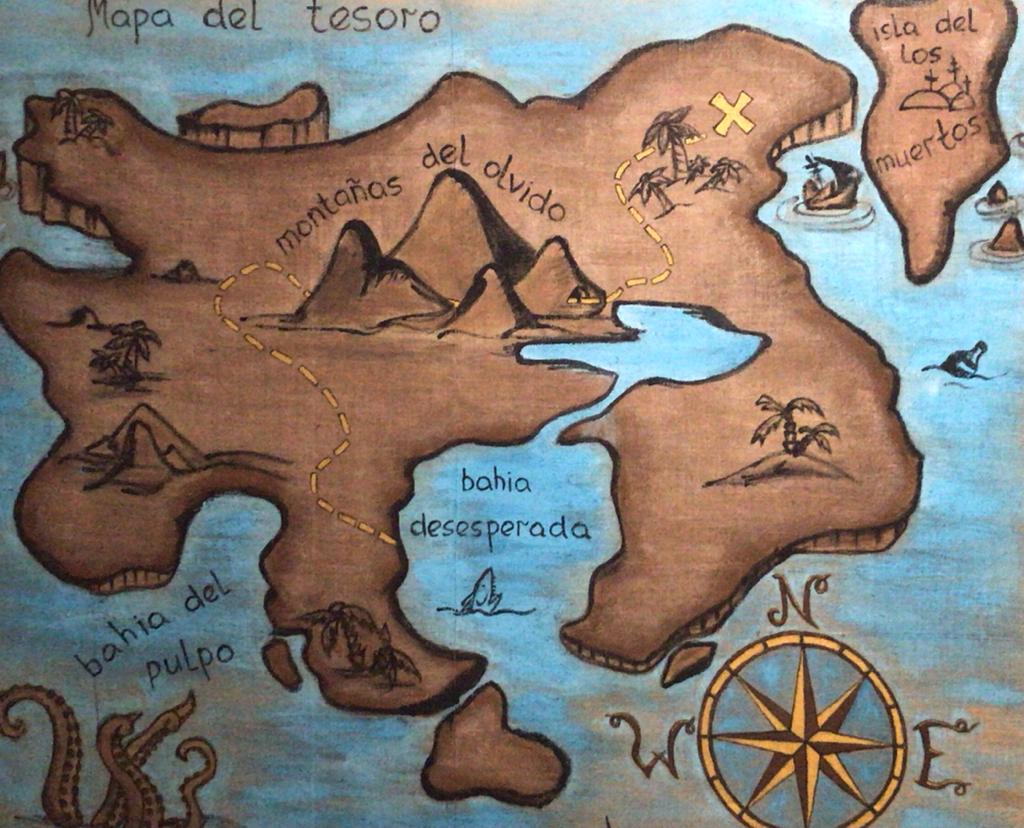 Mapa del tesoro
isla del
los
muertos
montañas del olvido
bahia
desesperada
bahia del
pulpo
N
W E